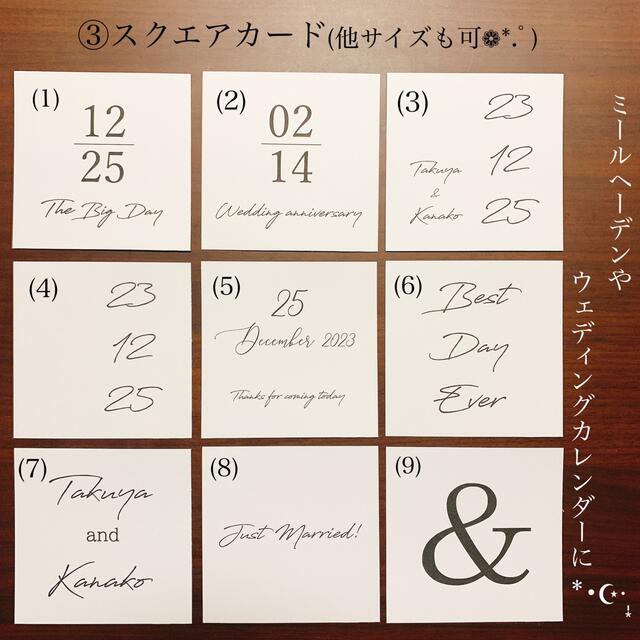 ③スクエアカード(他サイズも可❁*.ﾟ)
(1)
12
25
The Big Day
(2)
02
14
Wedding anniversary
(3)
23
12
25
Takuya
&
Kanako
(4)
23
12
25
(5)
25
December 2023
Thanks for coming today
(6)
Best
Day
Ever
(7)
Takuya
and
Kanako
(8)
Just Married!
(9)
&
ミールヘーデンや
ウェディングカレンダーに